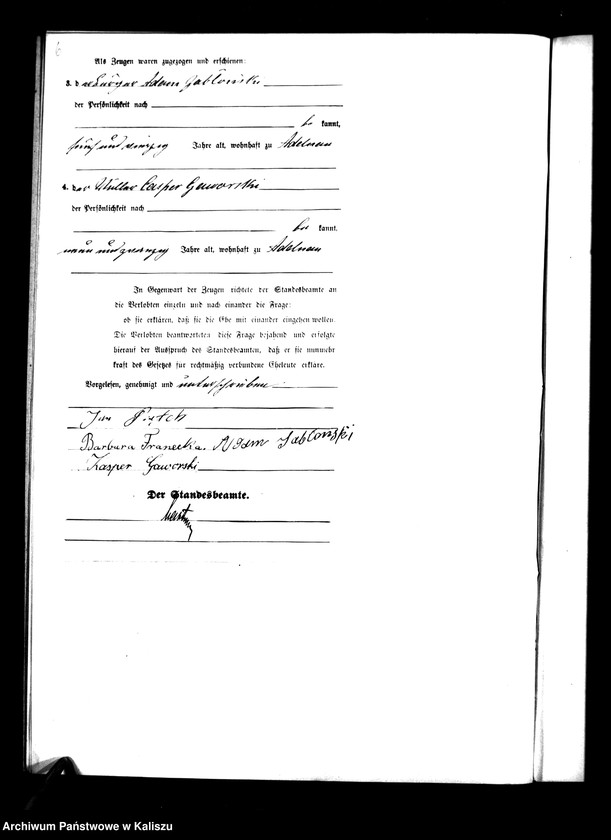 6
Als Zeugen waren zugezogen und erschienen:
3. der Adam Jablonski
der Persönlichkeit nach
be kannt,
fünf und vierzig Jahre alt, wohnhaft zu Adelnau
4. der Casper Gaworski
der Persönlichkeit nach
be kannt.
neun und zwanzig Jahre alt, wohnhaft zu Adelnau
In Gegenwart der Zeugen richtete der Standesbeamte an
die Verlobten einzeln und nach einander die Frage:
ob sie erklären, daß sie die Ehe mit einander eingehen wollen.
Die Verlobten beantworteten diese Frage bejahend und erfolgte
hierauf der Ausspruch des Standesbeamten, daß er sie nunmehr
kraft des Gesetzes für rechtmäßig verbundene Eheleute erkläre.
Vorgelesen, genehmigt und unterschrieben
Jan
Barbara Franecka. Adam Jablonski
Kasper Gaworski
Der Standesbeamte.
Archiwum Państwowe w Kaliszu